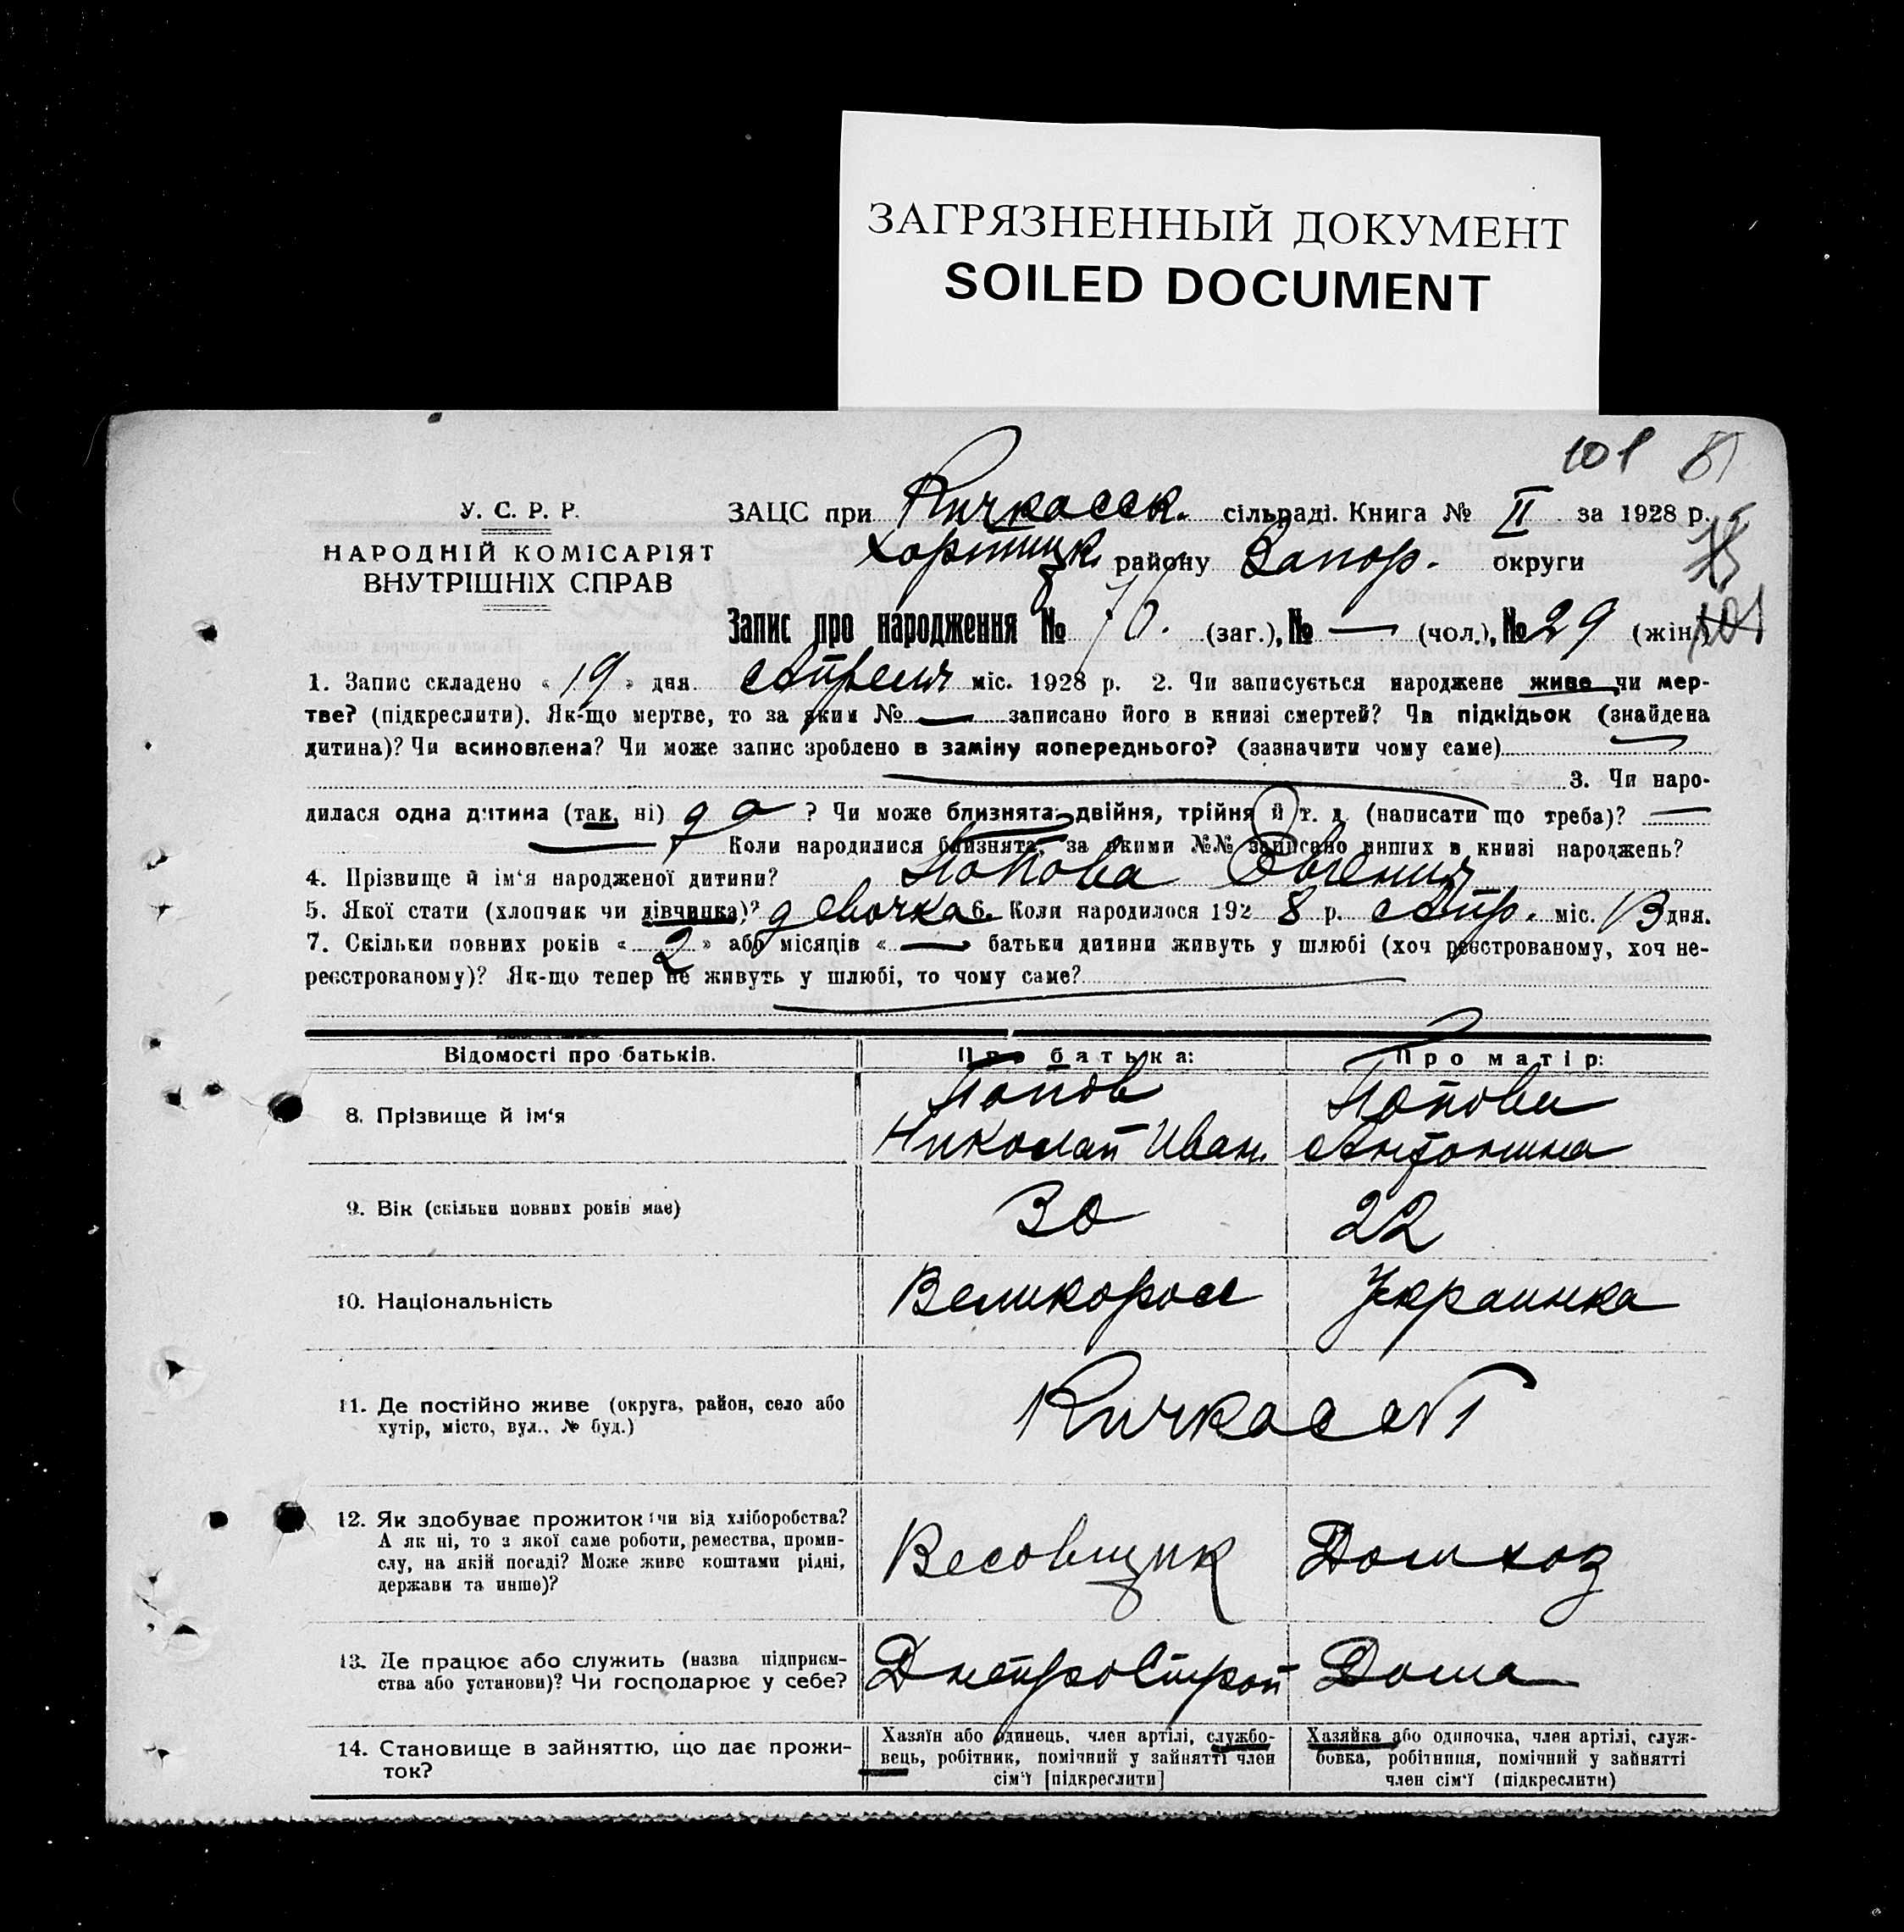 ЗАГРЯЗНЕННЫЙ ДОКУМЕНТ
SOILED DOCUMENT
101
У. С. Р. Р.
НАРОДНІЙ КОМІСАРІЯТ
ВНУТРІШНІХ СПРАВ
ЗАЦС при Кичкасск. сільраді. Книга № II за 1928 р.
Хортицк. району Запор. округи
Запис про народження № 76. (заг.), № — (чол.), № 29 (жін.)
101
1. Запис складено « 19 » дня Апреля міс. 1928 р. 2. Чи записується народжене живе чи мер-
тве? (підкреслити). Як-що мертве, то за яким № — записано його в книзі смертей? Чи підкідьок (знайдена
дитина)? Чи всиновлена? Чи може запис зроблено в заміну попереднього? (зазначити чому саме)
3. Чи наро-
дилася одна дитина (так, ні) да ? Чи може близнята, двійня, трійня й т. д. (написати що треба)? —
— Коли народилися близнята, за якими №№ записано инших в книзі народжень?
4. Прізвище й ім‘я народженої дитини? Попова Евгения
5. Якої стати (хлопчик чи дівчинка)? девочка 6. Коли народилося 192 8 р. Апр. міс. 13 дня.
7. Скільки повних років « 2 » або місяців « — » батьки дитини живуть у шлюбі (хоч реєстрованому, хоч не-
реєстрованому)? Як-що тепер не живуть у шлюбі, то чому саме?
Відомості про батьків. Про батька: Про матір:
8. Прізвище й ім‘я
Попов
Николай Иван.
Попова
Антонина
9. Вік (скільки повних років має) 30 22
10. Національність Великоросс Украинка
11. Де постійно живе (округа, район, село або
хутір, місто, вул., № буд.)
Кичкасс
12. Як здобуває прожиток (чи від хліборобства?
А як ні, то з якої саме роботи, ремества, проми-
слу, на якій посаді? Може живе коштами рідні,
держави та инше)?
Весовщик Домхоз
13. Де працює або служить (назва підприєм-
ства або установи)? Чи господарює у себе?
ДнепроСтрой Дома
14. Становище в зайняттю, що дає прожи-
ток?
Хазяїн або одинець, член артілі, службо-
вець, робітник, помічний у зайнятті член
сім‘ї [підкреслити]
Хазяйка або одиночка, член артілі, служ-
бовка, робітниця, помічний у зайнятті
член сім‘ї (підкреслити)